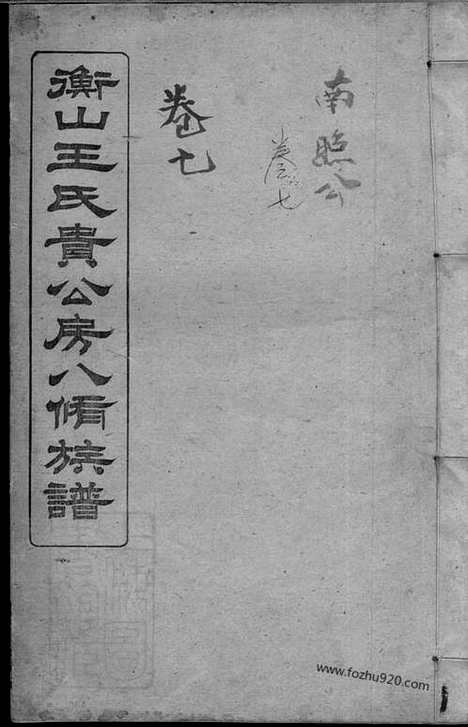 南照公
卷七
卷七
衡山王氏貴公房八脩族譜
www.fozhu920.com